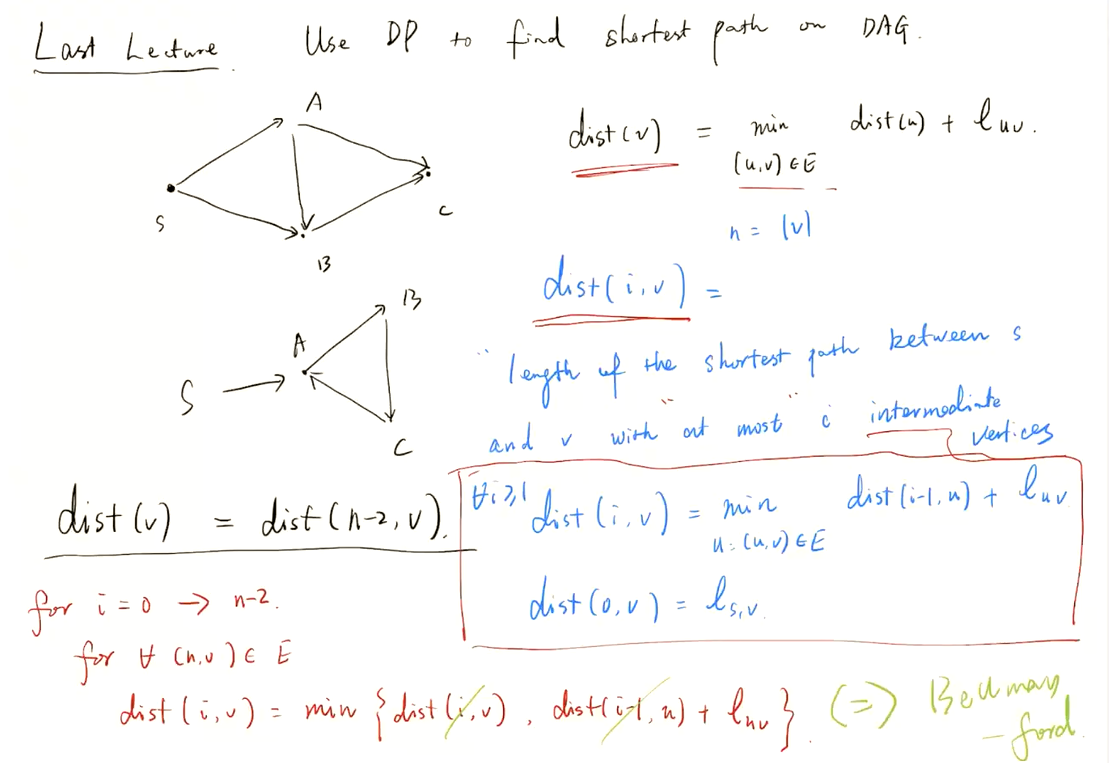 Last Lecture. Use DP to find shortest path on DAG.
A
S
B
C
dist(v) = min dist(u) + luv.
(u,v)∈E
n = |V|
dist(i,v) =
"length of the shortest path between s
and v with "at most" i intermediate
vertices
B
A
S
C
dist(v) = dist(n-2,v).
∀i≥1 dist(i,v) = min dist(i-1,u) + luv
u:(u,v)∈E
dist(0,v) = ls,v.
for i = 0 → n-2.
for ∀ (u,v) ∈ E
dist(i,v) = min {dist(i,v), dist(i-1,u) + luv}. (=) Bellman
-ford.